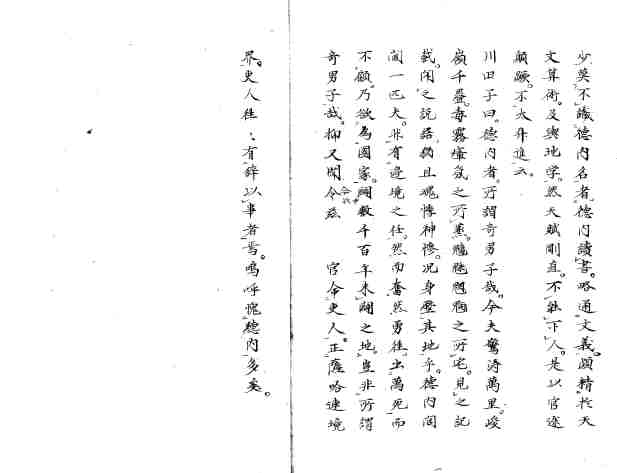 少莫不識德内名者德内讀書略通文義頗精於天
文算術及輿地学然天賦剛直不能下人是以官途
顛蹶不大升進云
川田子曰德内者所謂奇男子哉今夫驚濤萬里峻
嶺千疊毒霧瘴氛之所蒸魑魅魍魎之所宅見之記
載聞之説話猶且魂悸神慘况身歷其地乎德内閭
閻一匹夫非有邊境之任然而奮然勇往出萬死而
不顧乃欲為國家闢数千百年未闢之地豈非所謂
奇男子哉抑又聞令茲 官命吏人正薩哈連境
界吏人往々有辞以事者焉嗚呼愧德内多矣